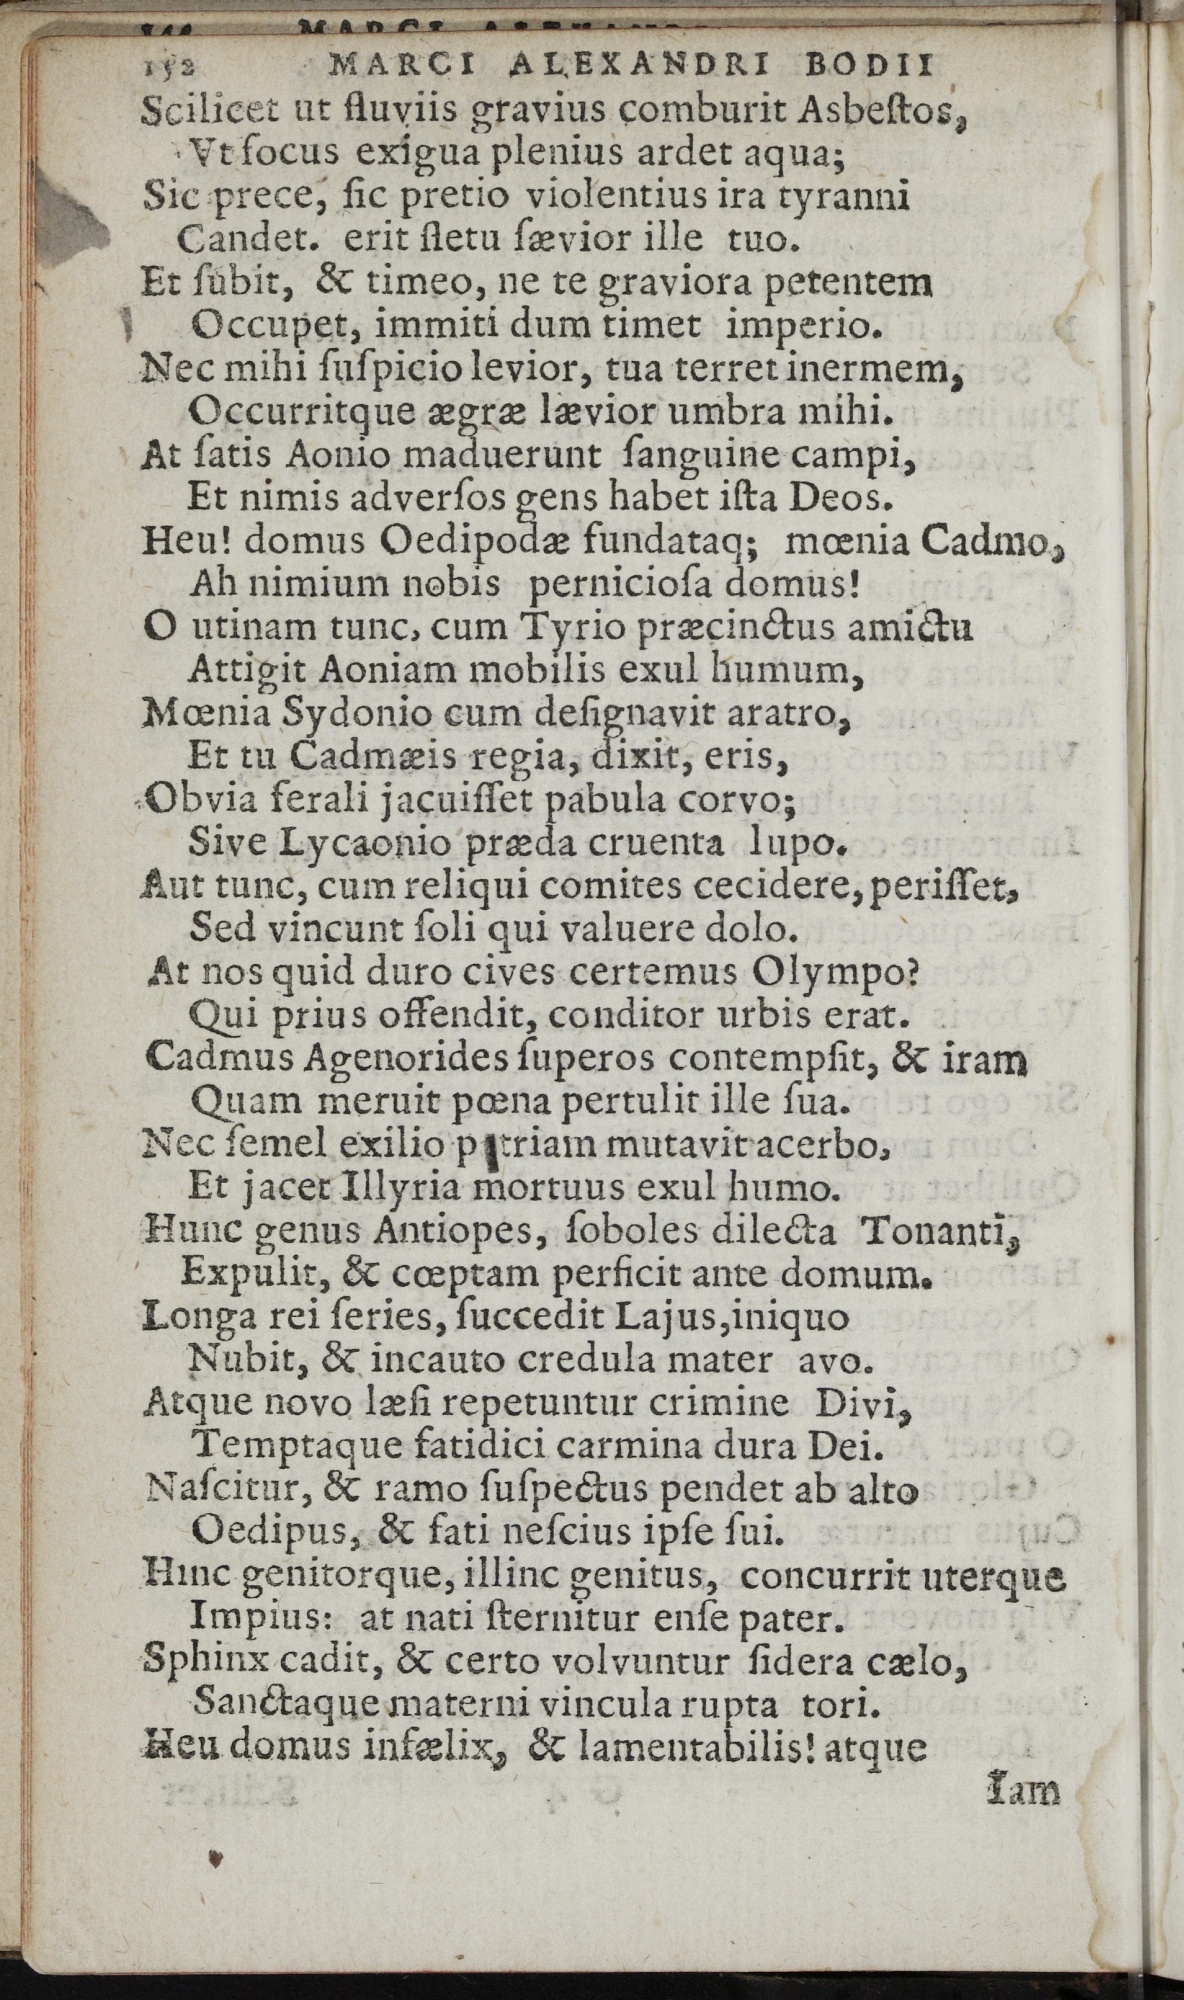 152 MARCI ALEXANDRI BODII
Scilicet ut fluviis gravius comburit Asbeſtos,
Vt focus exigua plenius ardet aqua;
Sic prece, ſic pretio violentius ira tyranni
Candet. erit fletu ſævior ille tuo.
Et ſubit, & timeo, ne te graviora petentem
Occupet, immiti dum timet imperio.
Nec mihi ſuſpicio levior, tua terret inermem,
Occurritque ægræ lævior umbra mihi.
At ſatis Aonio maduerunt ſanguine campi,
Et nimis adverſos gens habet iſta Deos.
Heu! domus Oedipodæ fundataq; mœnia Cadmo,
Ah nimium nobis pernicioſa domus!
O utinam tunc, cum Tyrio præcinctus amictu
Attigit Aoniam mobilis exul humum,
Mœnia Sydonio cum deſignavit aratro,
Et tu Cadmæis regia, dixit, eris,
Obvia ferali jacuiſſet pabula corvo;
Sive Lycaonio præda cruenta lupo.
Aut tunc, cum reliqui comites cecidere, periſſet,
Sed vincunt ſoli qui valuere dolo.
At nos quid duro cives certemus Olympo?
Qui prius offendit, conditor urbis erat.
Cadmus Agenorides ſuperos contempſit, & iram
Quam meruit pœna pertulit ille ſua.
Nec ſemel exilio patriam mutavit acerbo,
Et jacet Illyria mortuus exul humo.
Hunc genus Antiopes, ſoboles dilecta Tonanti,
Expulit, & cœptam perficit ante domum.
Longa rei ſeries, ſuccedit Lajus, iniquo
Nubit, & incauto credula mater avo.
Atque novo læſi repetuntur crimine Divi,
Temptaque fatidici carmina dura Dei.
Naſcitur, & ramo ſuſpectus pendet ab alto
Oedipus, & fati neſcius ipſe ſui.
Hinc genitorque, illinc genitus, concurrit uterque
Impius: at nati ſternitur enſe pater.
Sphinx cadit, & certo volvuntur ſidera cælo,
Sanctaque materni vincula rupta tori.
Heu domus infælix, & lamentabilis! atque
Iam